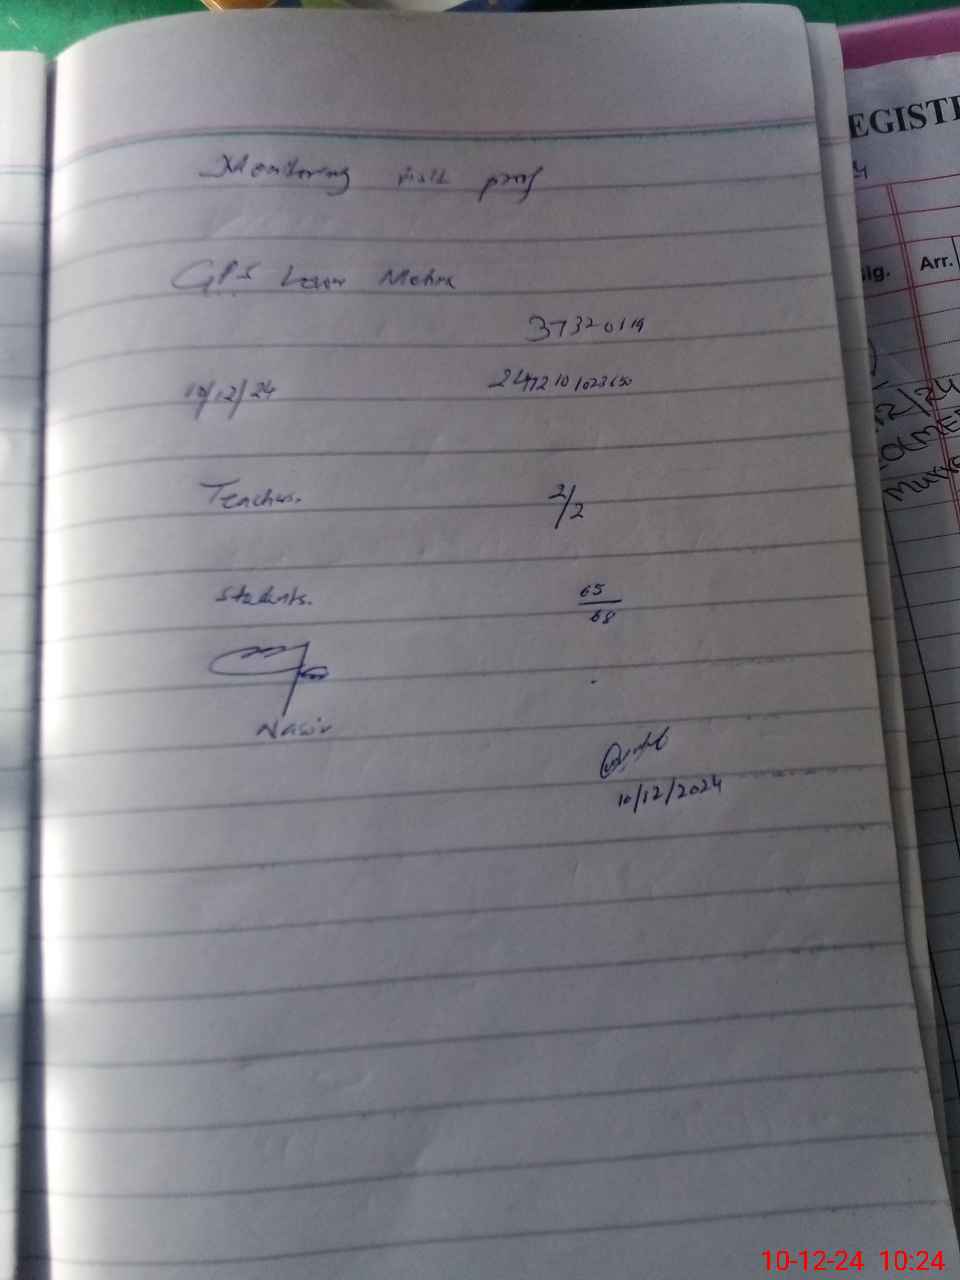 Monitoring visit proof
GPS Lower Mohra
37320119
10/12/24
Teachers.
2/2
Students.
65
68
Nasir
10/12/2024
EGISTE
4
Sig.
Arr.
12/24
10-12-24 10:24